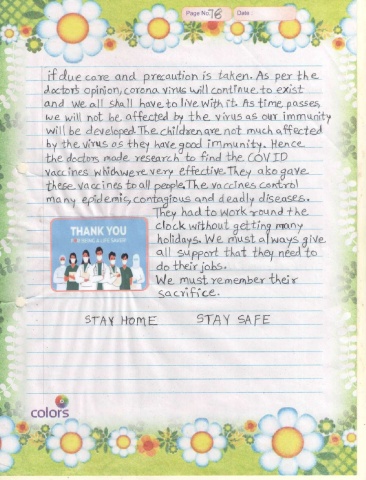 Page No. 78 Date:
if due care and precaution is taken. As per the
doctor's opinion, corona virus will continue to exist
and we all shall have to live with it. As time passes,
we will not be affected by the virus as our immunity
will be developed. The children are not much affected
by the virus as they have good immunity. Hence
the doctors made research to find the COVID
vaccines which were very effective. They also gave
these vaccines to all people. The vaccines control
many epidemis, contagious and deadly diseases.
They had to work round the
clock without getting many
holidays. We must always give
all support that they need to
do their jobs.
We must remember their
sacrifice.
THANK YOU
FOR BEING A LIFE SAVER!
STAY HOME STAY SAFE
colors